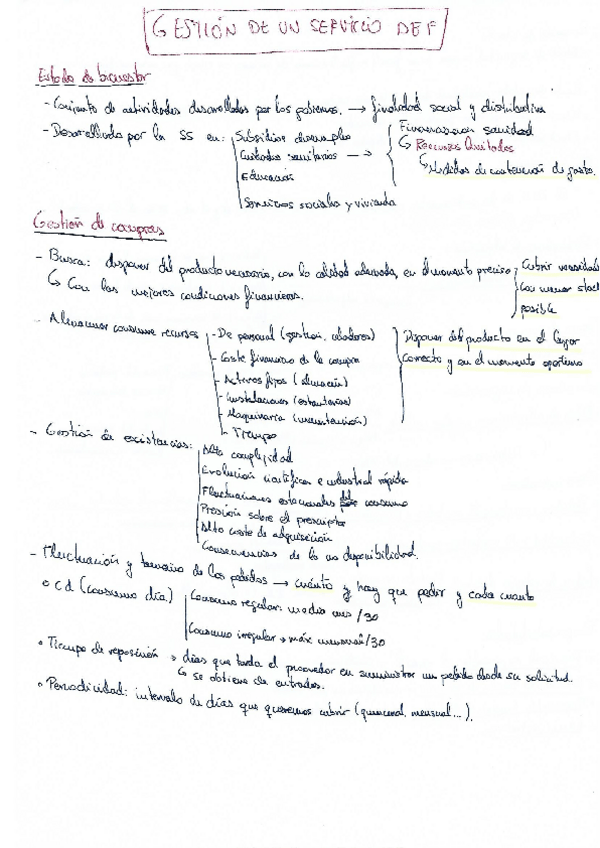 GESTIÓN DE UN SERVICIO DE F
Estado de bienestar
- Conjunto de actividades desarrolladas por los gobiernos. → finalidad social y distributiva
- Desarrollada por la SS en: Subsidios desempleo
Cuidados sanitarios →
Educación
Servicios sociales y vivienda
Financiación sanidad
↳ Recursos limitados
↳ Medidas de contención de gasto.
Gestión de compras
- Busca: disponer del producto necesario, con la calidad adecuada, en el momento preciso
↳ Con las mejores condiciones financieras.
Cubrir necesidades
Con menor stock
posible
- Almacenar consume recursos
- De personal (gestión, celadores)
- Coste financiero de la compra
- Activos fijos (almacén)
- Instalaciones (estanterías)
- Maquinaria (manutención)
- Tiempo
Disponer del producto en el lugar
correcto y en el momento oportuno
- Gestión de existencias: Alta complejidad
Evolución científica e industrial rápida
Fluctuaciones estacionales consumo
Presión sobre el prescriptor
Alto coste de adquisición
Consecuencias de la no disponibilidad.
- Fluctuación y tamaño de los pedidos → cuánto y hay que pedir y cada cuanto
° Cd (consumo día) Consumo regular: media mes /30
Consumo irregular → máx mensual /30
° Tiempo de reposición → días que tarda el proveedor en suministrar un pedido desde su solicitud.
↳ se obtiene de entradas.
° Periodicidad: intervalo de días que queremos cubrir (quincenal, mensual...).